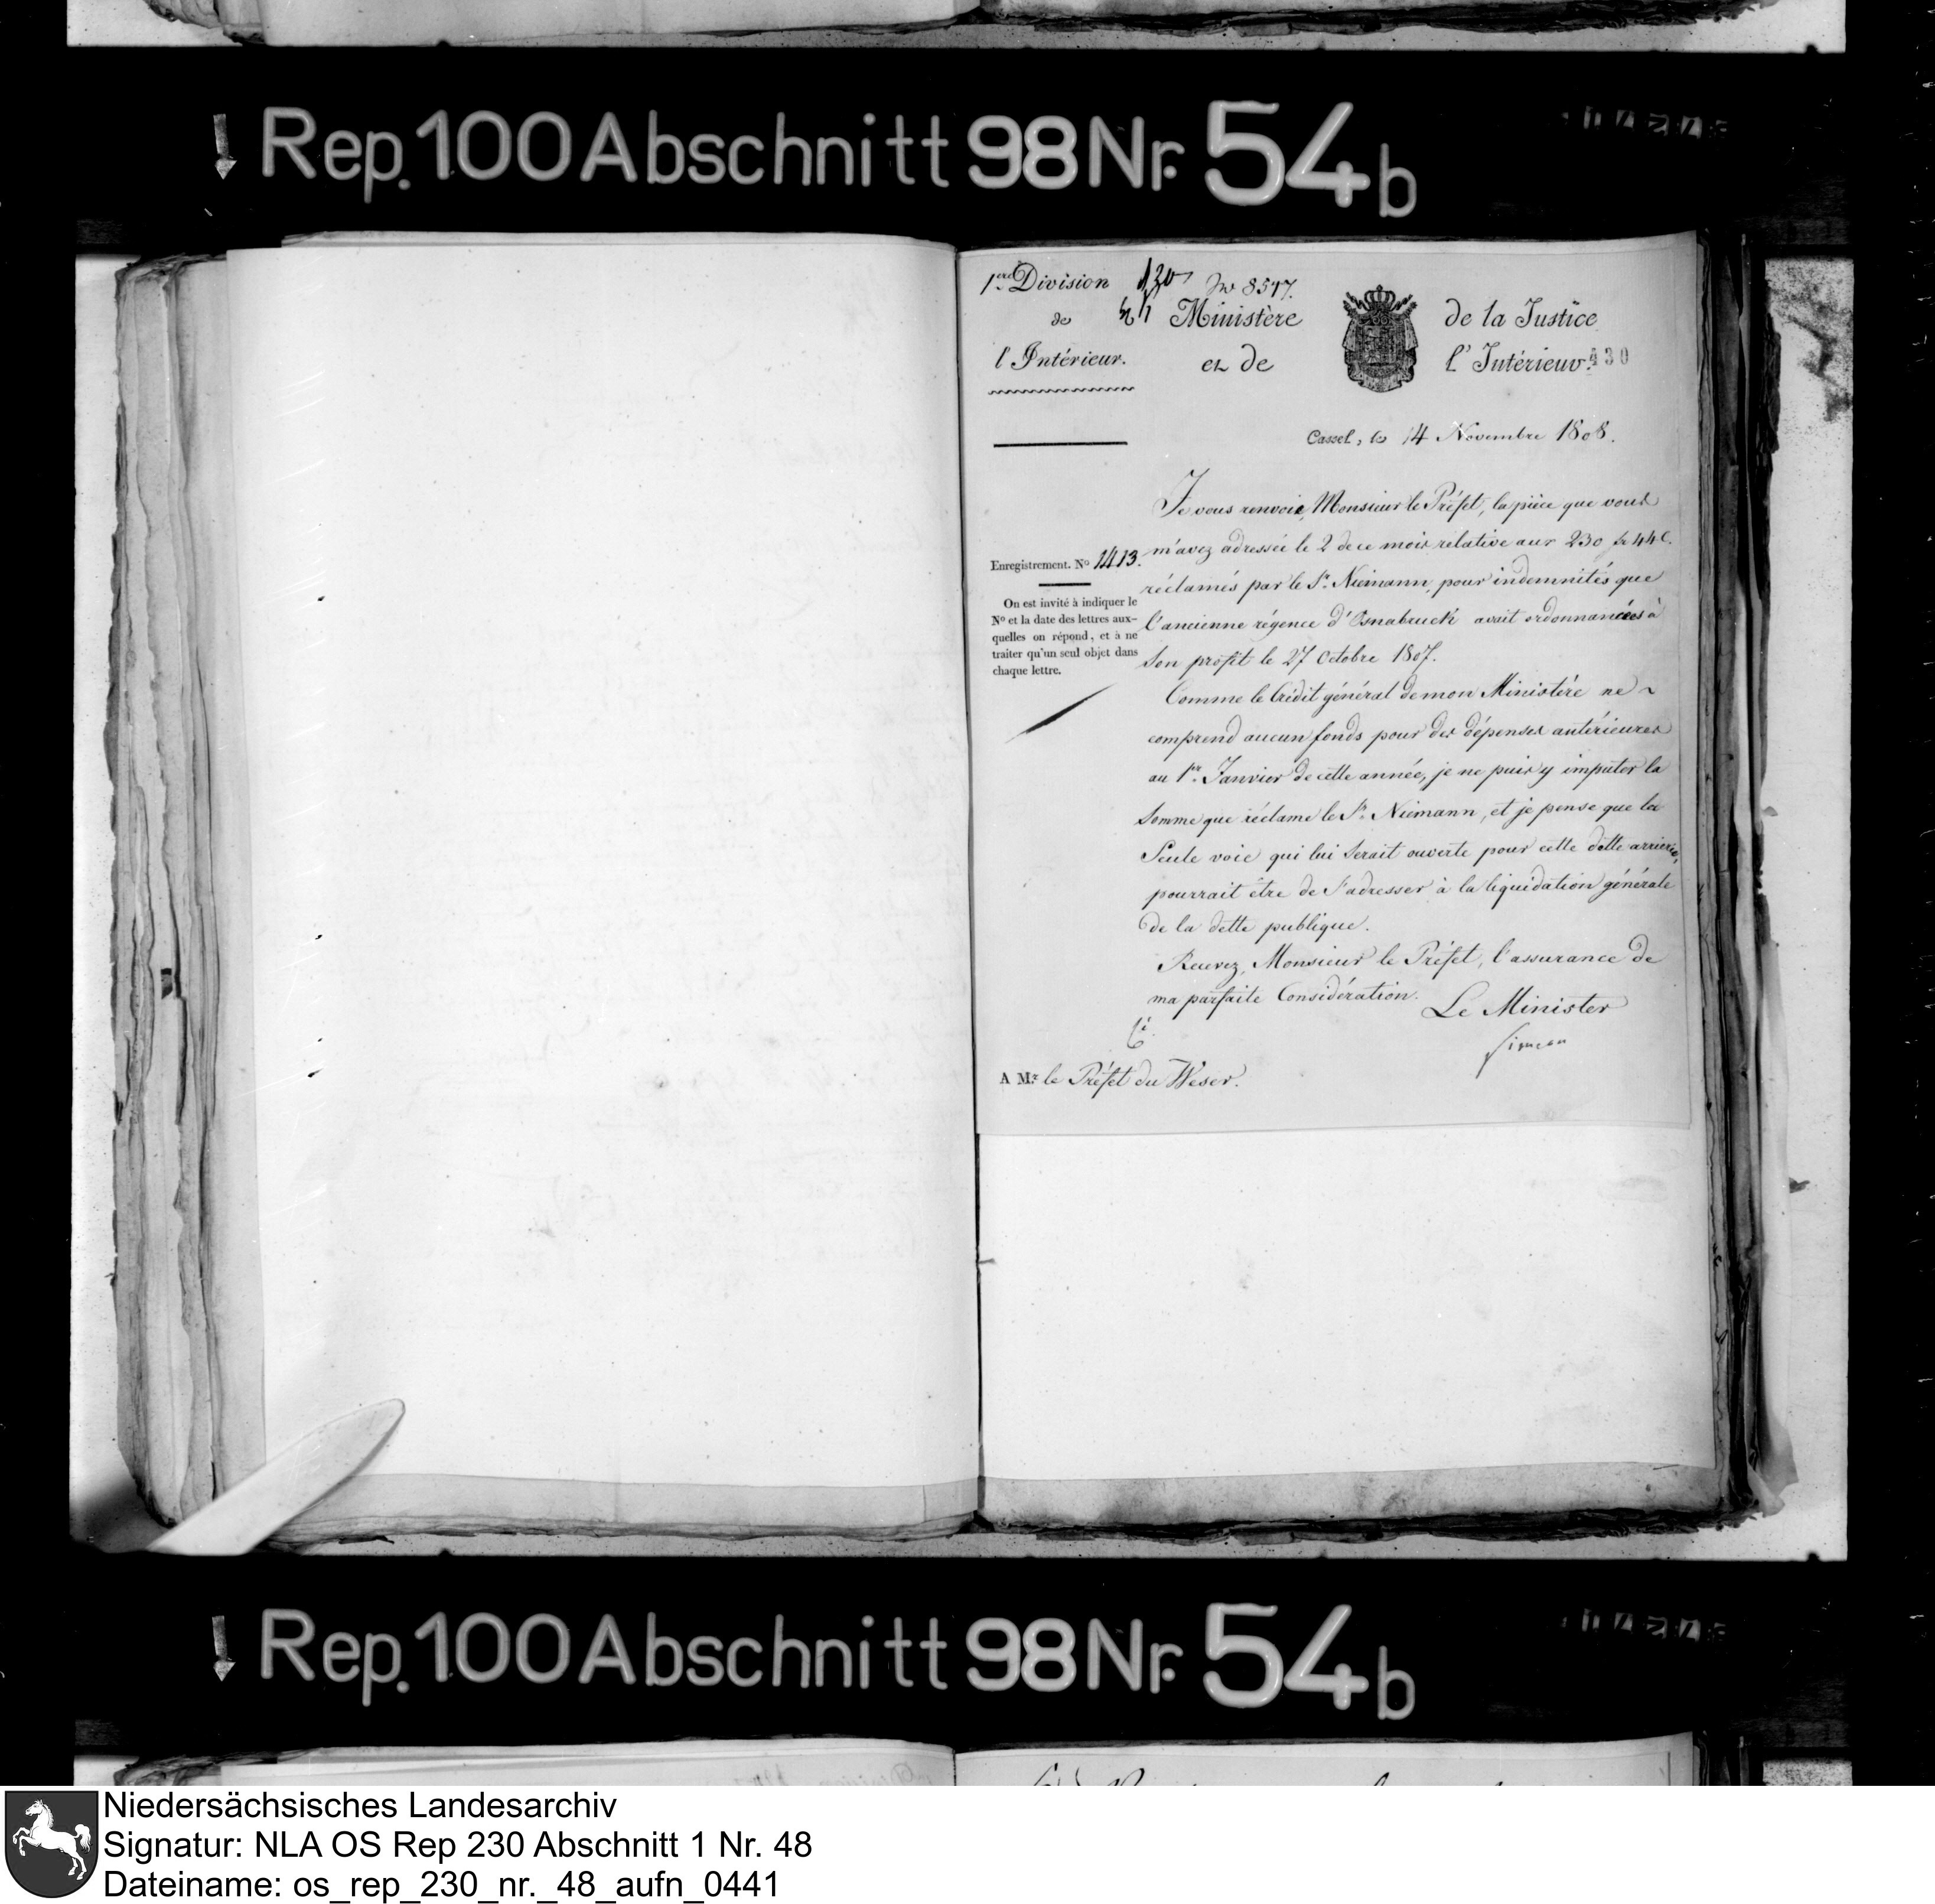 Rep. 100 Abschnitt 98 Nr. 54b
1ere Division
de
l'Intérieur.
130
8517.
Ministère
et de
de la Justice
l'Intérieur.
430
Cassel, le 14 Novembre 1808.
Enregistrement. No 1413.
On est invité à indiquer le
No et la date des lettres aux-
quelles on répond, et à ne
traiter qu'un seul objet dans
chaque lettre.
Je vous renvoie, Monsieur le Préfet, la pièce que vous
m'avez adressée le 2 de ce mois relative aux 230 fr 44 C.
réclamés par le Sr. Niemann, pour indemnités que
l'ancienne régence d'Osnabruck avait ordonnancées à
Son profit le 27 Octobre 1807.
Comme le Crédit général de mon Ministère ne
comprend aucun fonds pour des dépenses antérieures
au 1er Janvier de cette année, je ne puis y imputer la
Somme que réclame le Sr. Niemann, et je pense que la
Seule voie qui lui Serait ouverte pour cette dette arriérée,
pourrait être de S'adresser à la liquidation générale
de la dette publique.
Recevez, Monsieur le Préfet, l'assurance de
ma parfaite Considération.
Le Minister
Simeon
A Mr. le Préfet du Weser.
Rep. 100 Abschnitt 98 Nr. 54b
Niedersächsisches Landesarchiv
Signatur: NLA OS Rep 230 Abschnitt 1 Nr. 48
Dateiname: os_rep_230_nr._48_aufn_0441